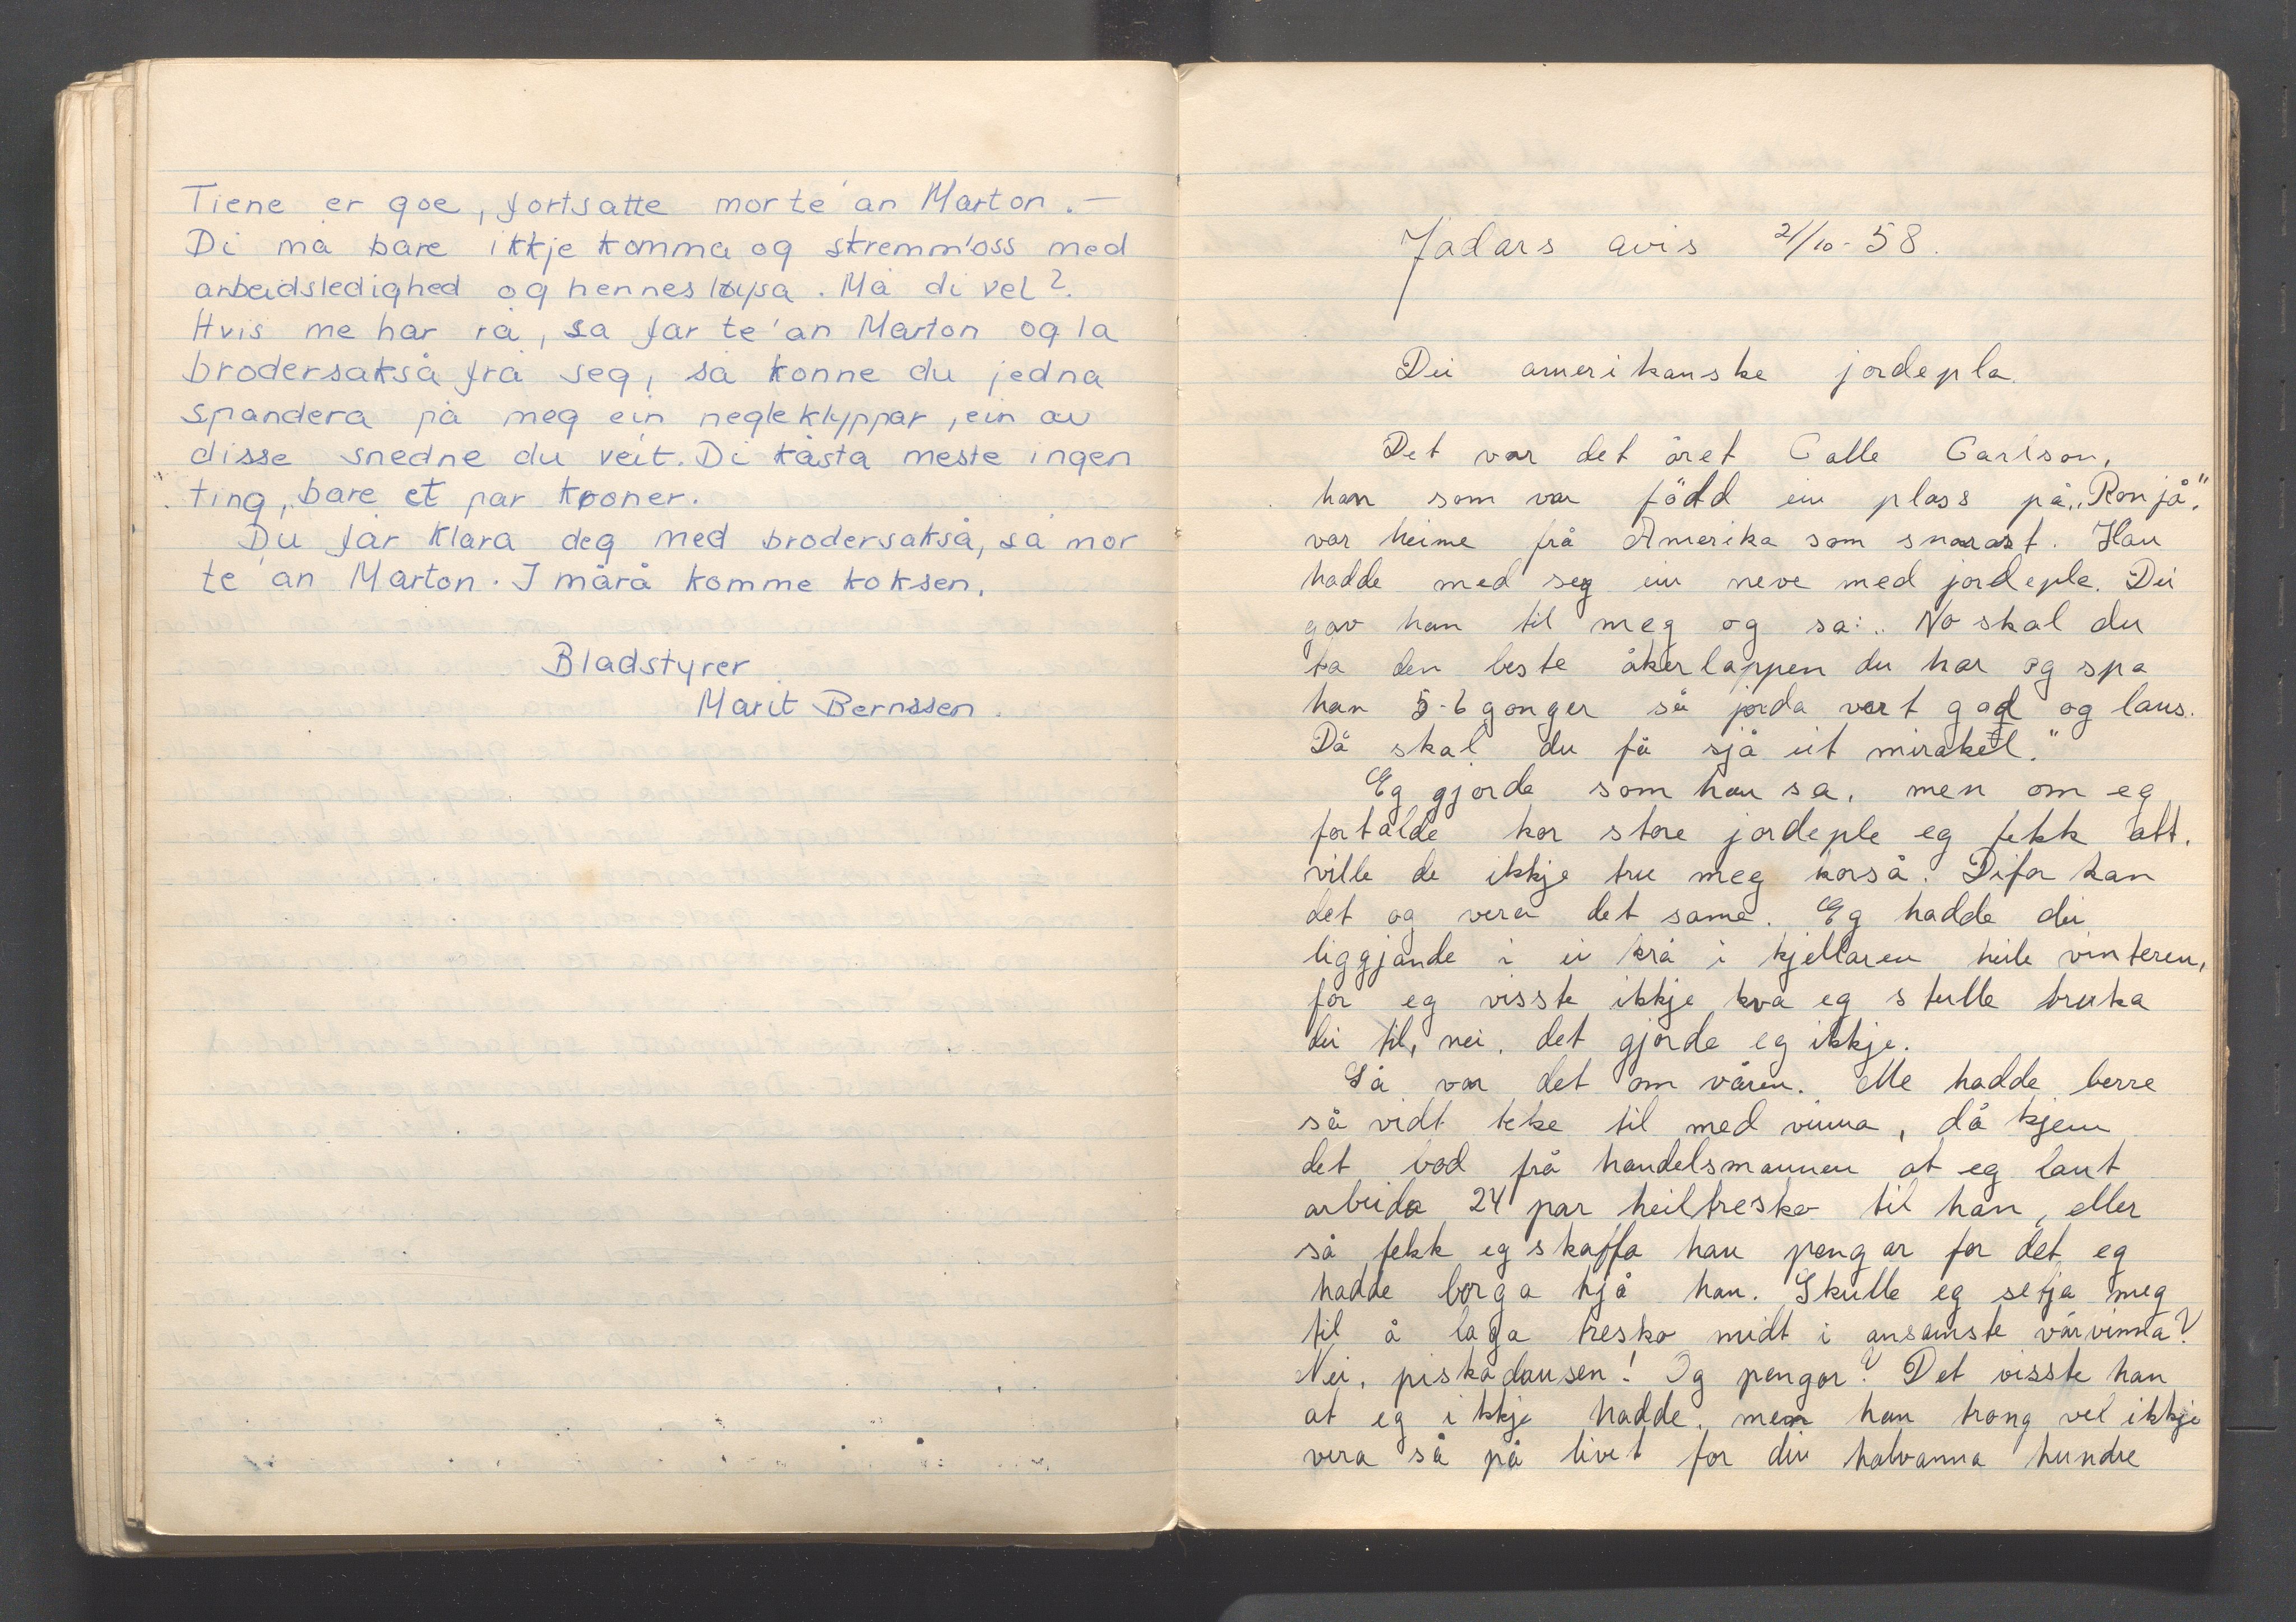 Tiene er goe, fortsatte mor te'an Marton. –
Di må bare ikkje komma og skremm'oss med
arbeidsledighed og hennesløysa. Må di vel?
Hvis me har rå, sa far te'an Marton og la
brodersakså frå seg, så konne du jedna
spandera på meg ein negleklyppar, ein av
disse snedne du veit. Di kåsta meste ingen
ting, bare et par krooner.
Du får klara deg med brodersakså, sa mor
te'an Marton. I mårå komme koksen.
Bladstyrer
Marit Bernssen.
Jadars avis 21/10-58.
Dei amerikanske jordepla.
Det var det året Calle Carlson,
han som var född ein plass på „Ronjå."
var heime frå Amerika som snarast. Han
hadde med seg ein neve med jordeple. Dei
gav han til meg og sa: „No skal du
ta den beste åkerlappen du har og spa
han 5-6 gonger så jorda vert god og laus.
Då skal du få sjå eit mirakel."
Eg gjorde som han sa, men om eg
fortalde kor store jordeple eg fekk att,
ville de ikkje tru meg korså. Difor kan
det og vera det same. Eg hadde dei
liggjande i ei krå i kjellaren heile vinteren,
for eg visste ikkje kva eg skulle bruka
dei til, nei, det gjorde eg ikkje.
Så var det om våren. Me hadde berre
så vidt teke til med vinna, då kjem
det bod frå handelsmannen at eg laut
arbeida 24 par heiltresko til han, eller
så fekk eg skaffa han pengar for det eg
hadde borga hjå han. Skulle eg setja meg
til å laga tresko midt i ansamste vårvinna?
Nei, piskadausen! Og pengar? Det visste han
at eg ikkje hadde, men han trong vel ikkje
vera så på livet for dei halvanna hundre